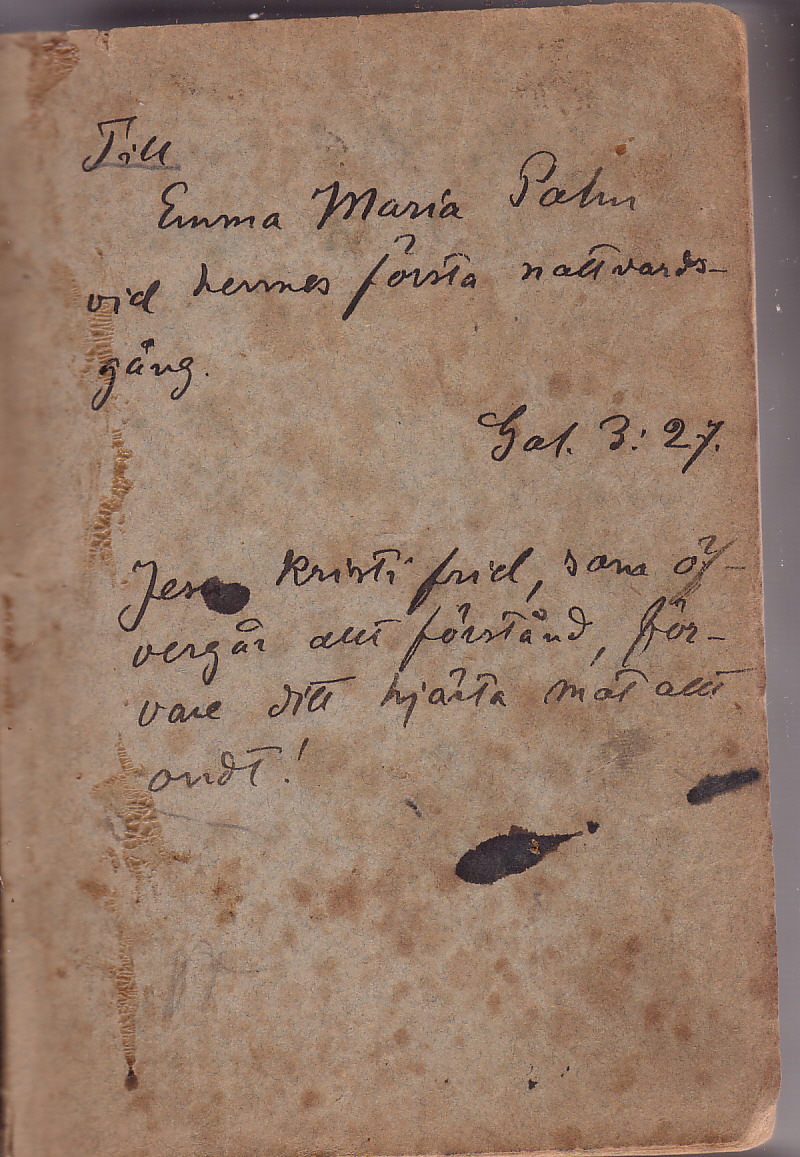 Till
Emma Maria Palm
vid hennes första nattvards-
gång.
Gal. 3:27.
Jesu Kristi frid, som öf-
vergår allt förstånd, för-
vare ditt hjärta mot allt
ondt!